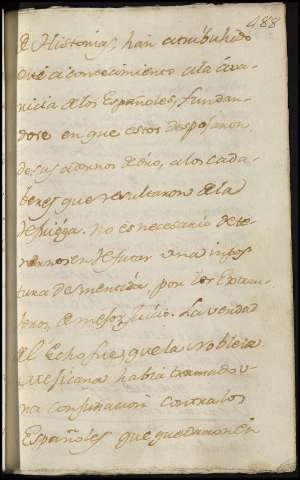 488
de Historia, han atribuhido
este acontecimiento a la ava-
ricia de los Españoles, fundan-
dose en que estos despojaron
de sus adornos de oro, a los cada-
beres que resultaron de la
No es necesario dete-
nernos en refutar una impos-
tura desmentida por los Extran-
geros de mejor juicio. La verdad
del hecho fue, que la nobleza
Mexicana habia tramado u-
na conjuracion contra los
Españoles que quedaron en